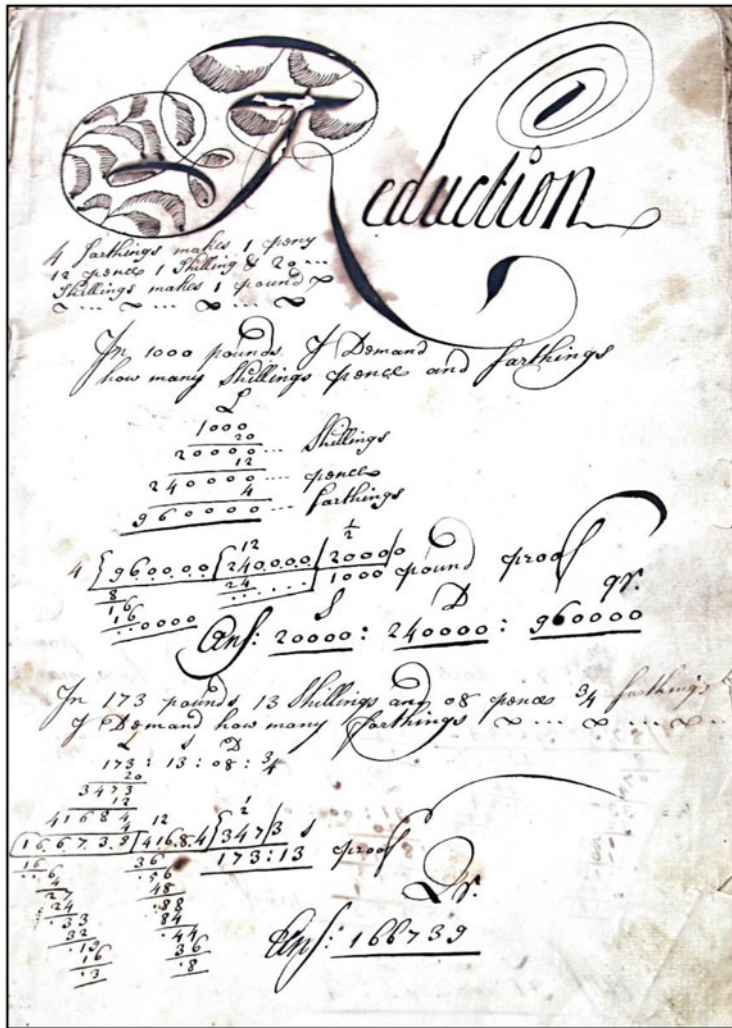 Reduction
4 farthings makes 1 peny
12 pence 1 Shilling & 20 ...
Shillings makes 1 pound
In 1000 pounds I Demand
how many Shillings pence and farthings
L
1000
20
20000 ... Shillings
12
240000 ... pence
4
960000 ... farthings
12 1/2
4 { 9 6 0 . 0 . 0 0 { 2 4 0 . 0 . 0 0 | 2 0 0 0 | 0
8 24 1000 pound proof
16
16
0000
S D qr.
Ans: 20000 : 240000 : 960000
In 173 pounds 13 Shillings and 08 pence 3/4 farthings
I Demand how many farthings
L S D
173 : 13 : 08 : 3/4
20
3473
12
41684 12 1/2
4
16.6.7.3.9 41.6.8.4 { 347 | 3 s
16 36 173:13 proof
..6 .56
4 48
27 .88
24 84
.33 .44
32 36
.19 .8
16
.3
Qr.
Ans: 166739